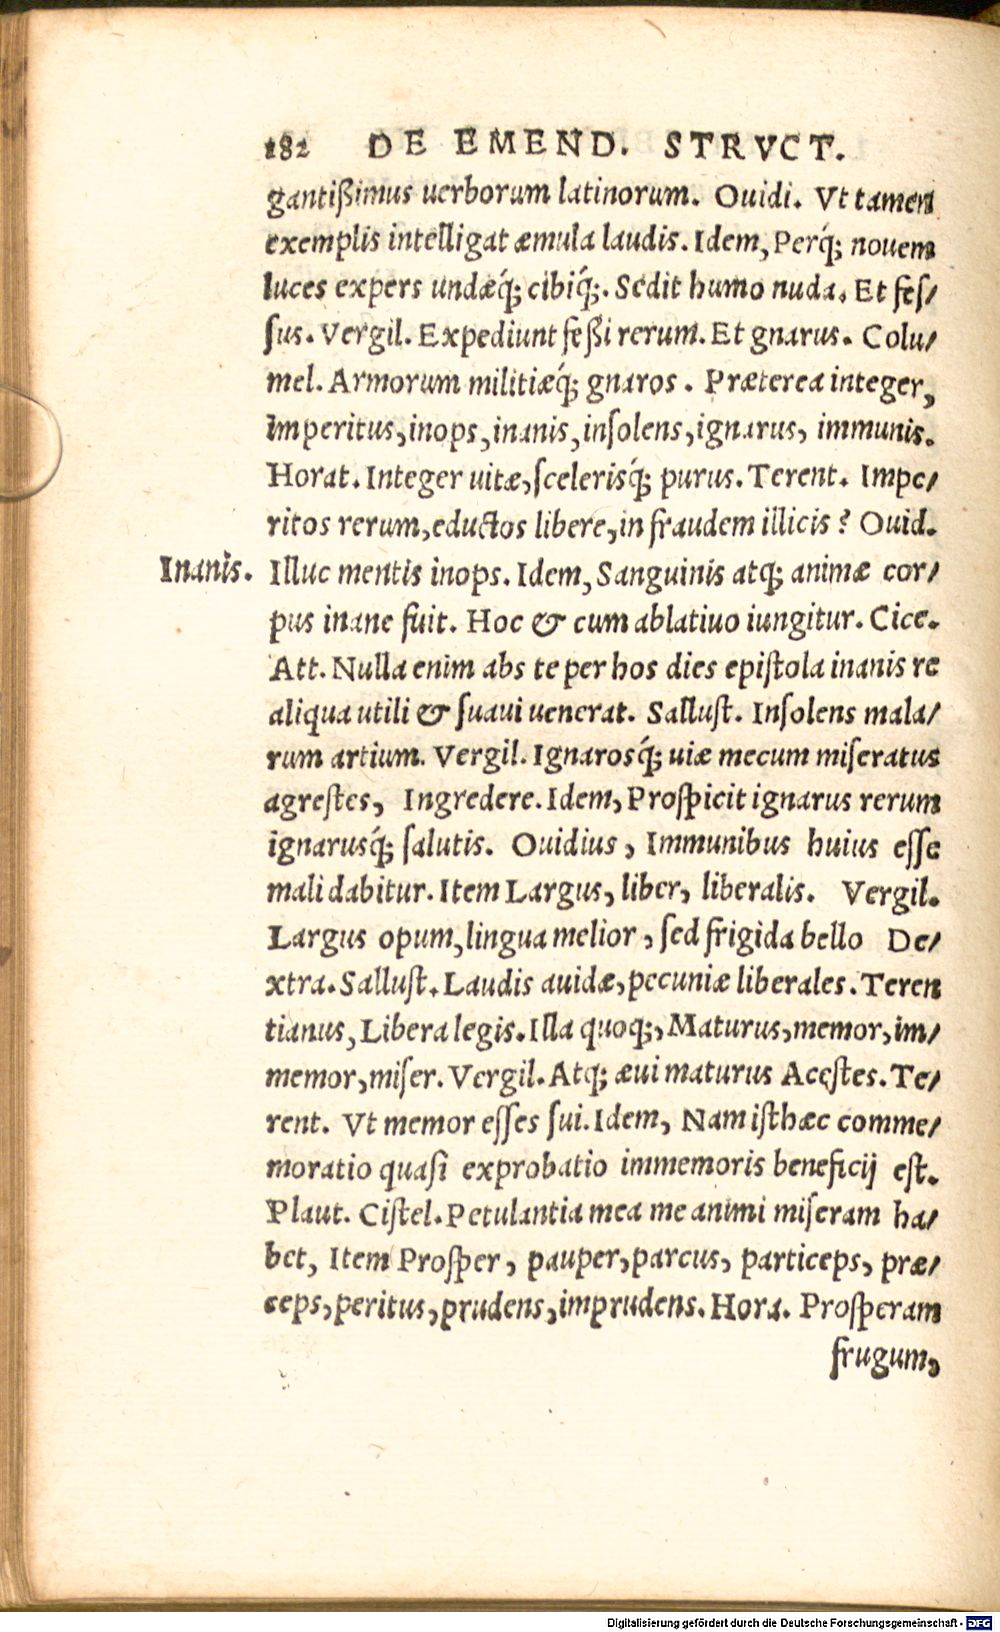 182 DE EMEND. STRVCT.
gantißimus uerborum latinorum. Ouidi. Vt tamen
exemplis intelligat æmula laudis. Idem, Perq́; nouem
luces expers undæq́; cibiq́;. Sedit humo nuda. Et feſ/
ſus. Vergil. Expediunt feßi rerum. Et gnarus. Colu/
mel. Armorum militiæq́; gnaros. Præterea integer,
imperitus, inops, inanis, inſolens, ignarus, immunis.
Horat. Integer uitæ, ſceleriſq́; purus. Terent. Impe/
ritos rerum, eductos libere, in fraudem illicis? Ouid.
Inanis. Illuc mentis inops. Idem, Sanguinis atq; animæ cor/
pus inane fuit. Hoc & cum ablatiuo iungitur. Cice.
Att. Nulla enim abs te per hos dies epiſtola inanis re
aliqua utili & ſuaui uenerat. Salluſt. Inſolens mala/
rum artium. Vergil. Ignarosq́; uiæ mecum miſeratus
agreſtes, Ingredere. Idem, Proſpicit ignarus rerum
ignarusq́; ſalutis. Ouidius, Immunibus huius eſſe
mali dabitur. Item Largus, liber, liberalis. Vergil.
Largus opum, lingua melior, ſed frigida bello De/
xtra. Salluſt. Laudis auidæ, pecuniæ liberales. Teren
tianus, Libera legis. Illa quoq;, Maturus, memor, im/
memor, miſer. Vergil. Atq; æui maturus Aceſtes. Te/
rent. Vt memor eſſes ſui. Idem, Nam iſthæc comme/
moratio quaſi exprobatio immemoris beneficij eſt.
Plaut. Ciſtel. Petulantia mea me animi miſeram ha/
bet, Item Proſper, pauper, parcus, particeps, præ/
ceps, peritus, prudens, imprudens. Hora. Proſperam
frugum,
Digitalisierung gefördert durch die Deutsche Forschungsgemeinschaft - DFG